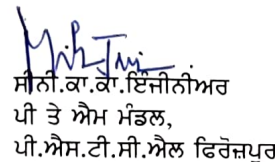 ਸੀਨੀ.ਕਾ.ਕਾ.ਇੰਜੀਨੀਅਰ
ਪੀ ਤੇ ਐਮ ਮੰਡਲ,
ਪੀ.ਐਸ.ਟੀ.ਸੀ.ਐਲ ਫਿਰੋਜ਼ਪੁਰ